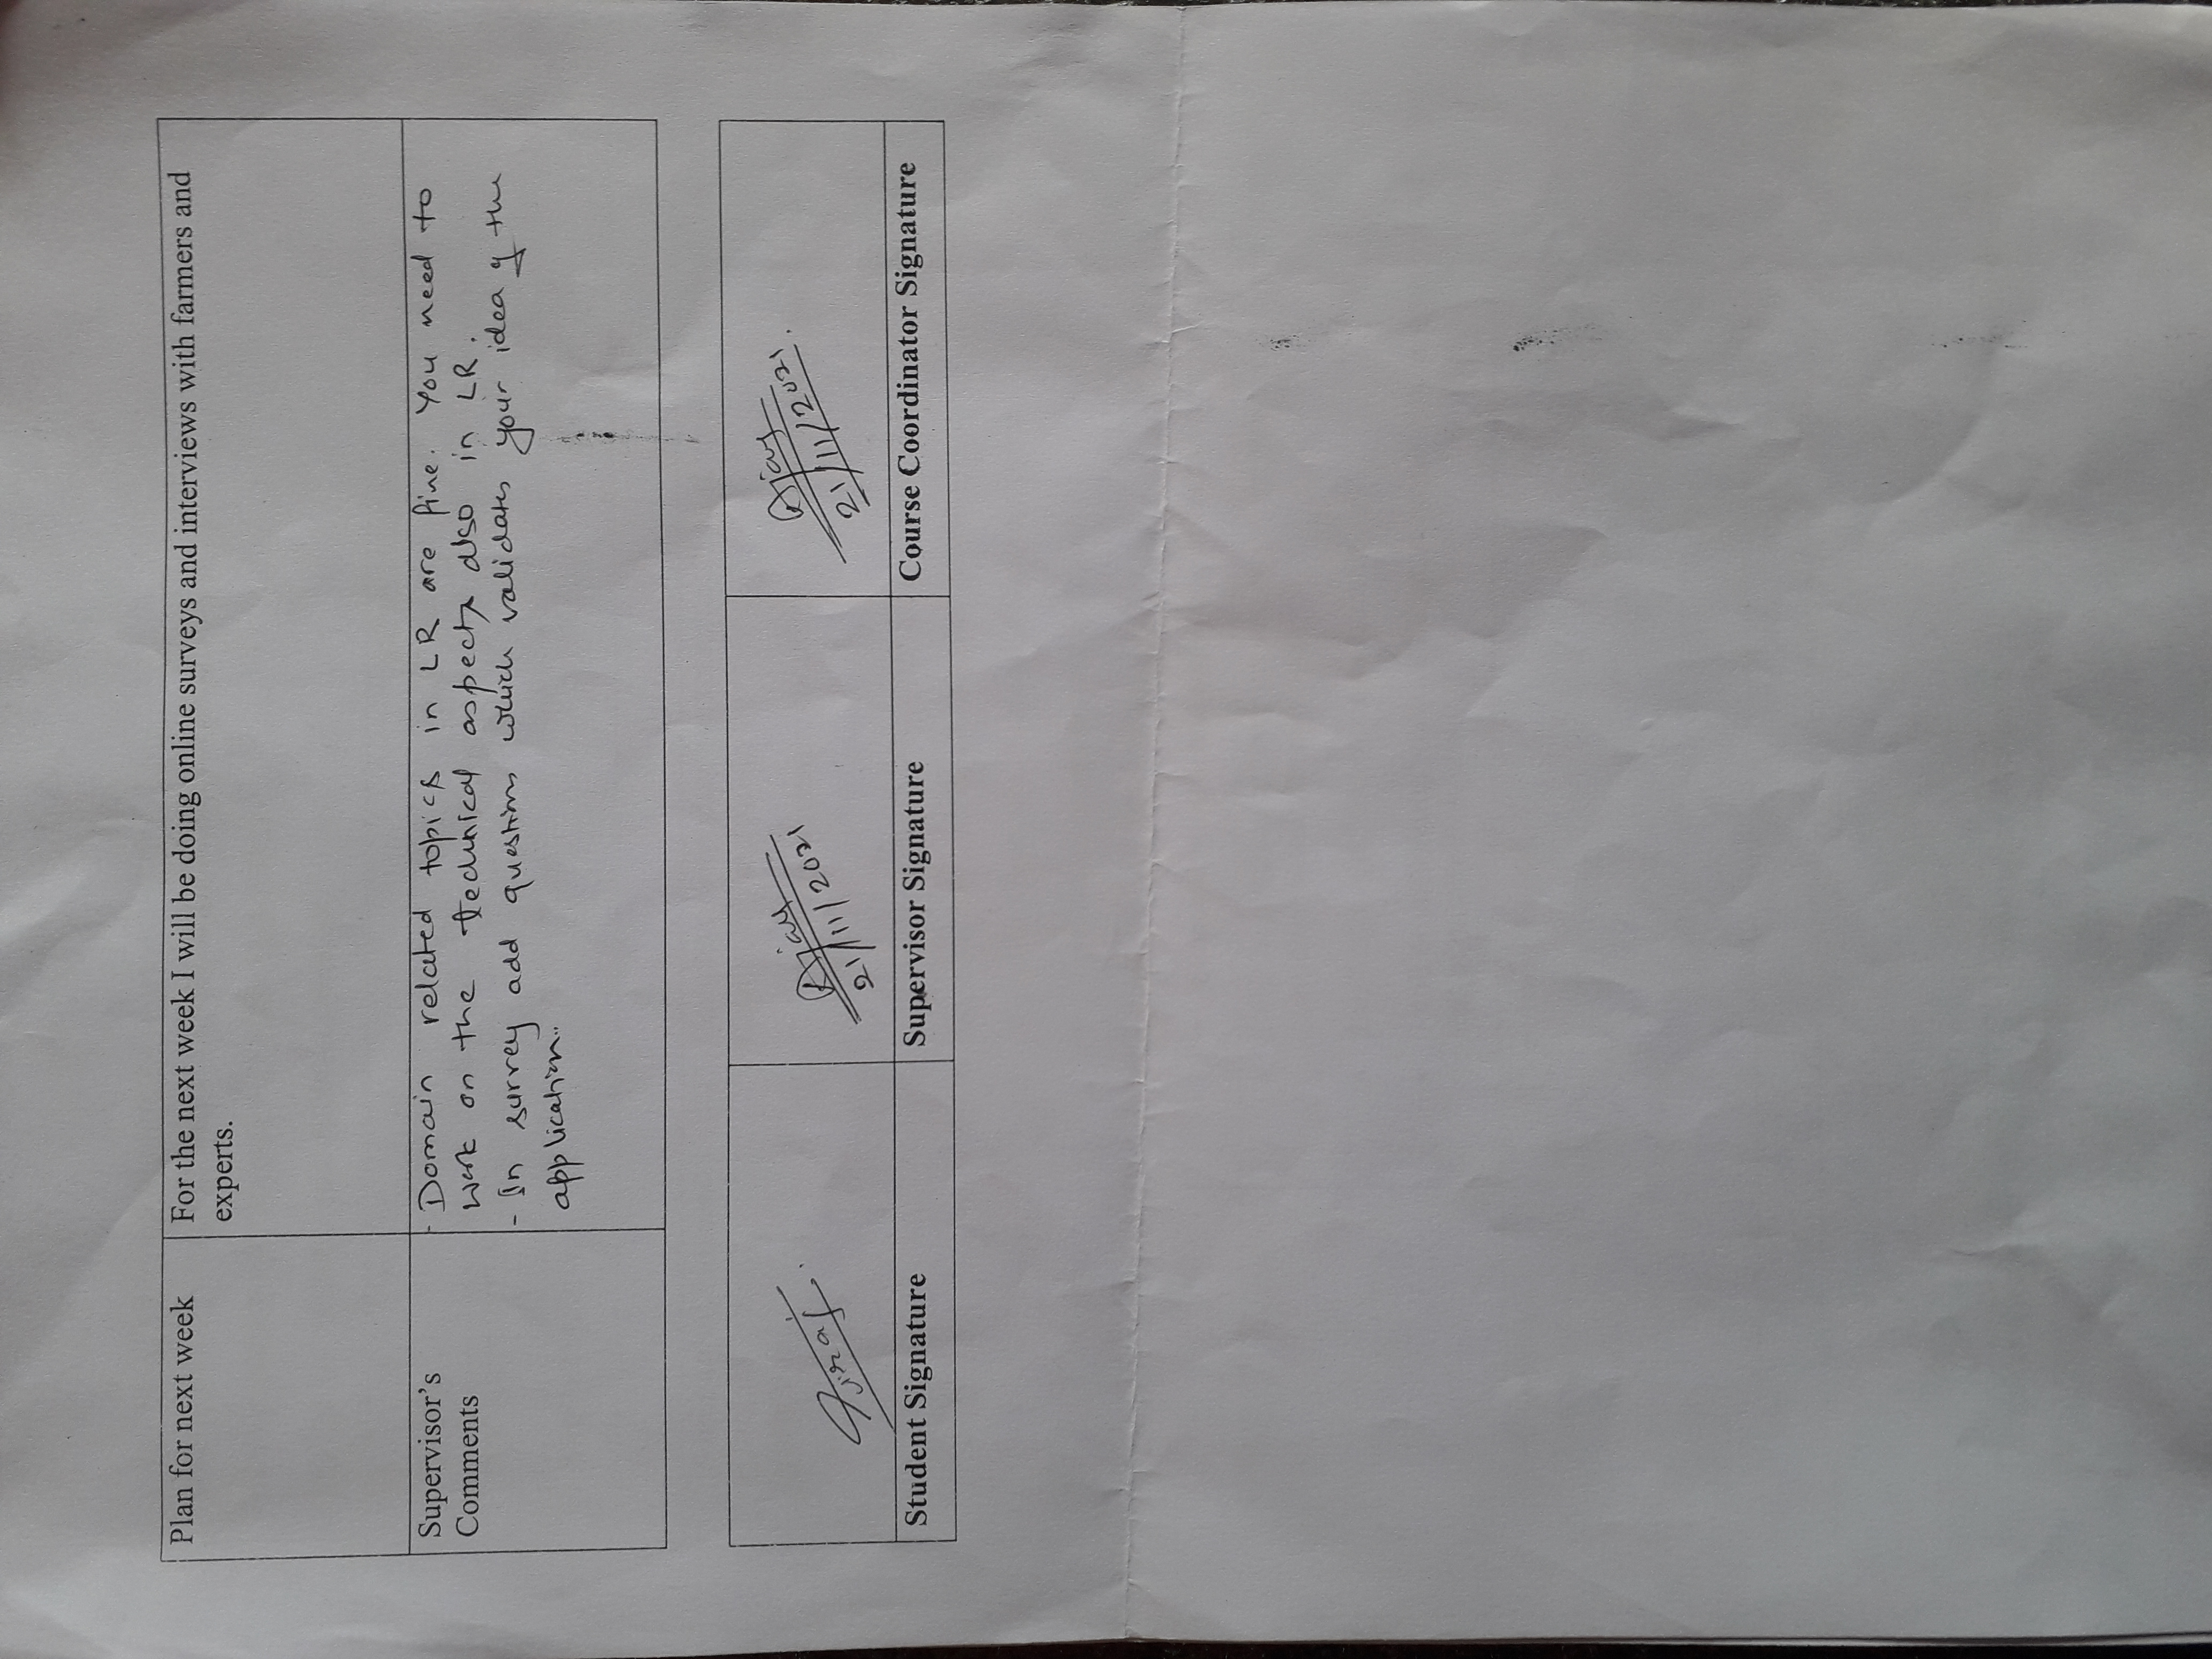 Plan for next week
For the next week I will be doing online surveys and interviews with farmers and
experts.
Supervisor's
Comments
- Domain related topics in LR are fine. You need to
work on the technical aspects also in LR.
- In survey add questions which validates your idea of the
application..
Viraj
Ajay
21/11/2021
Ajay
21/11/2021.
Student Signature
Supervisor Signature
Course Coordinator Signature